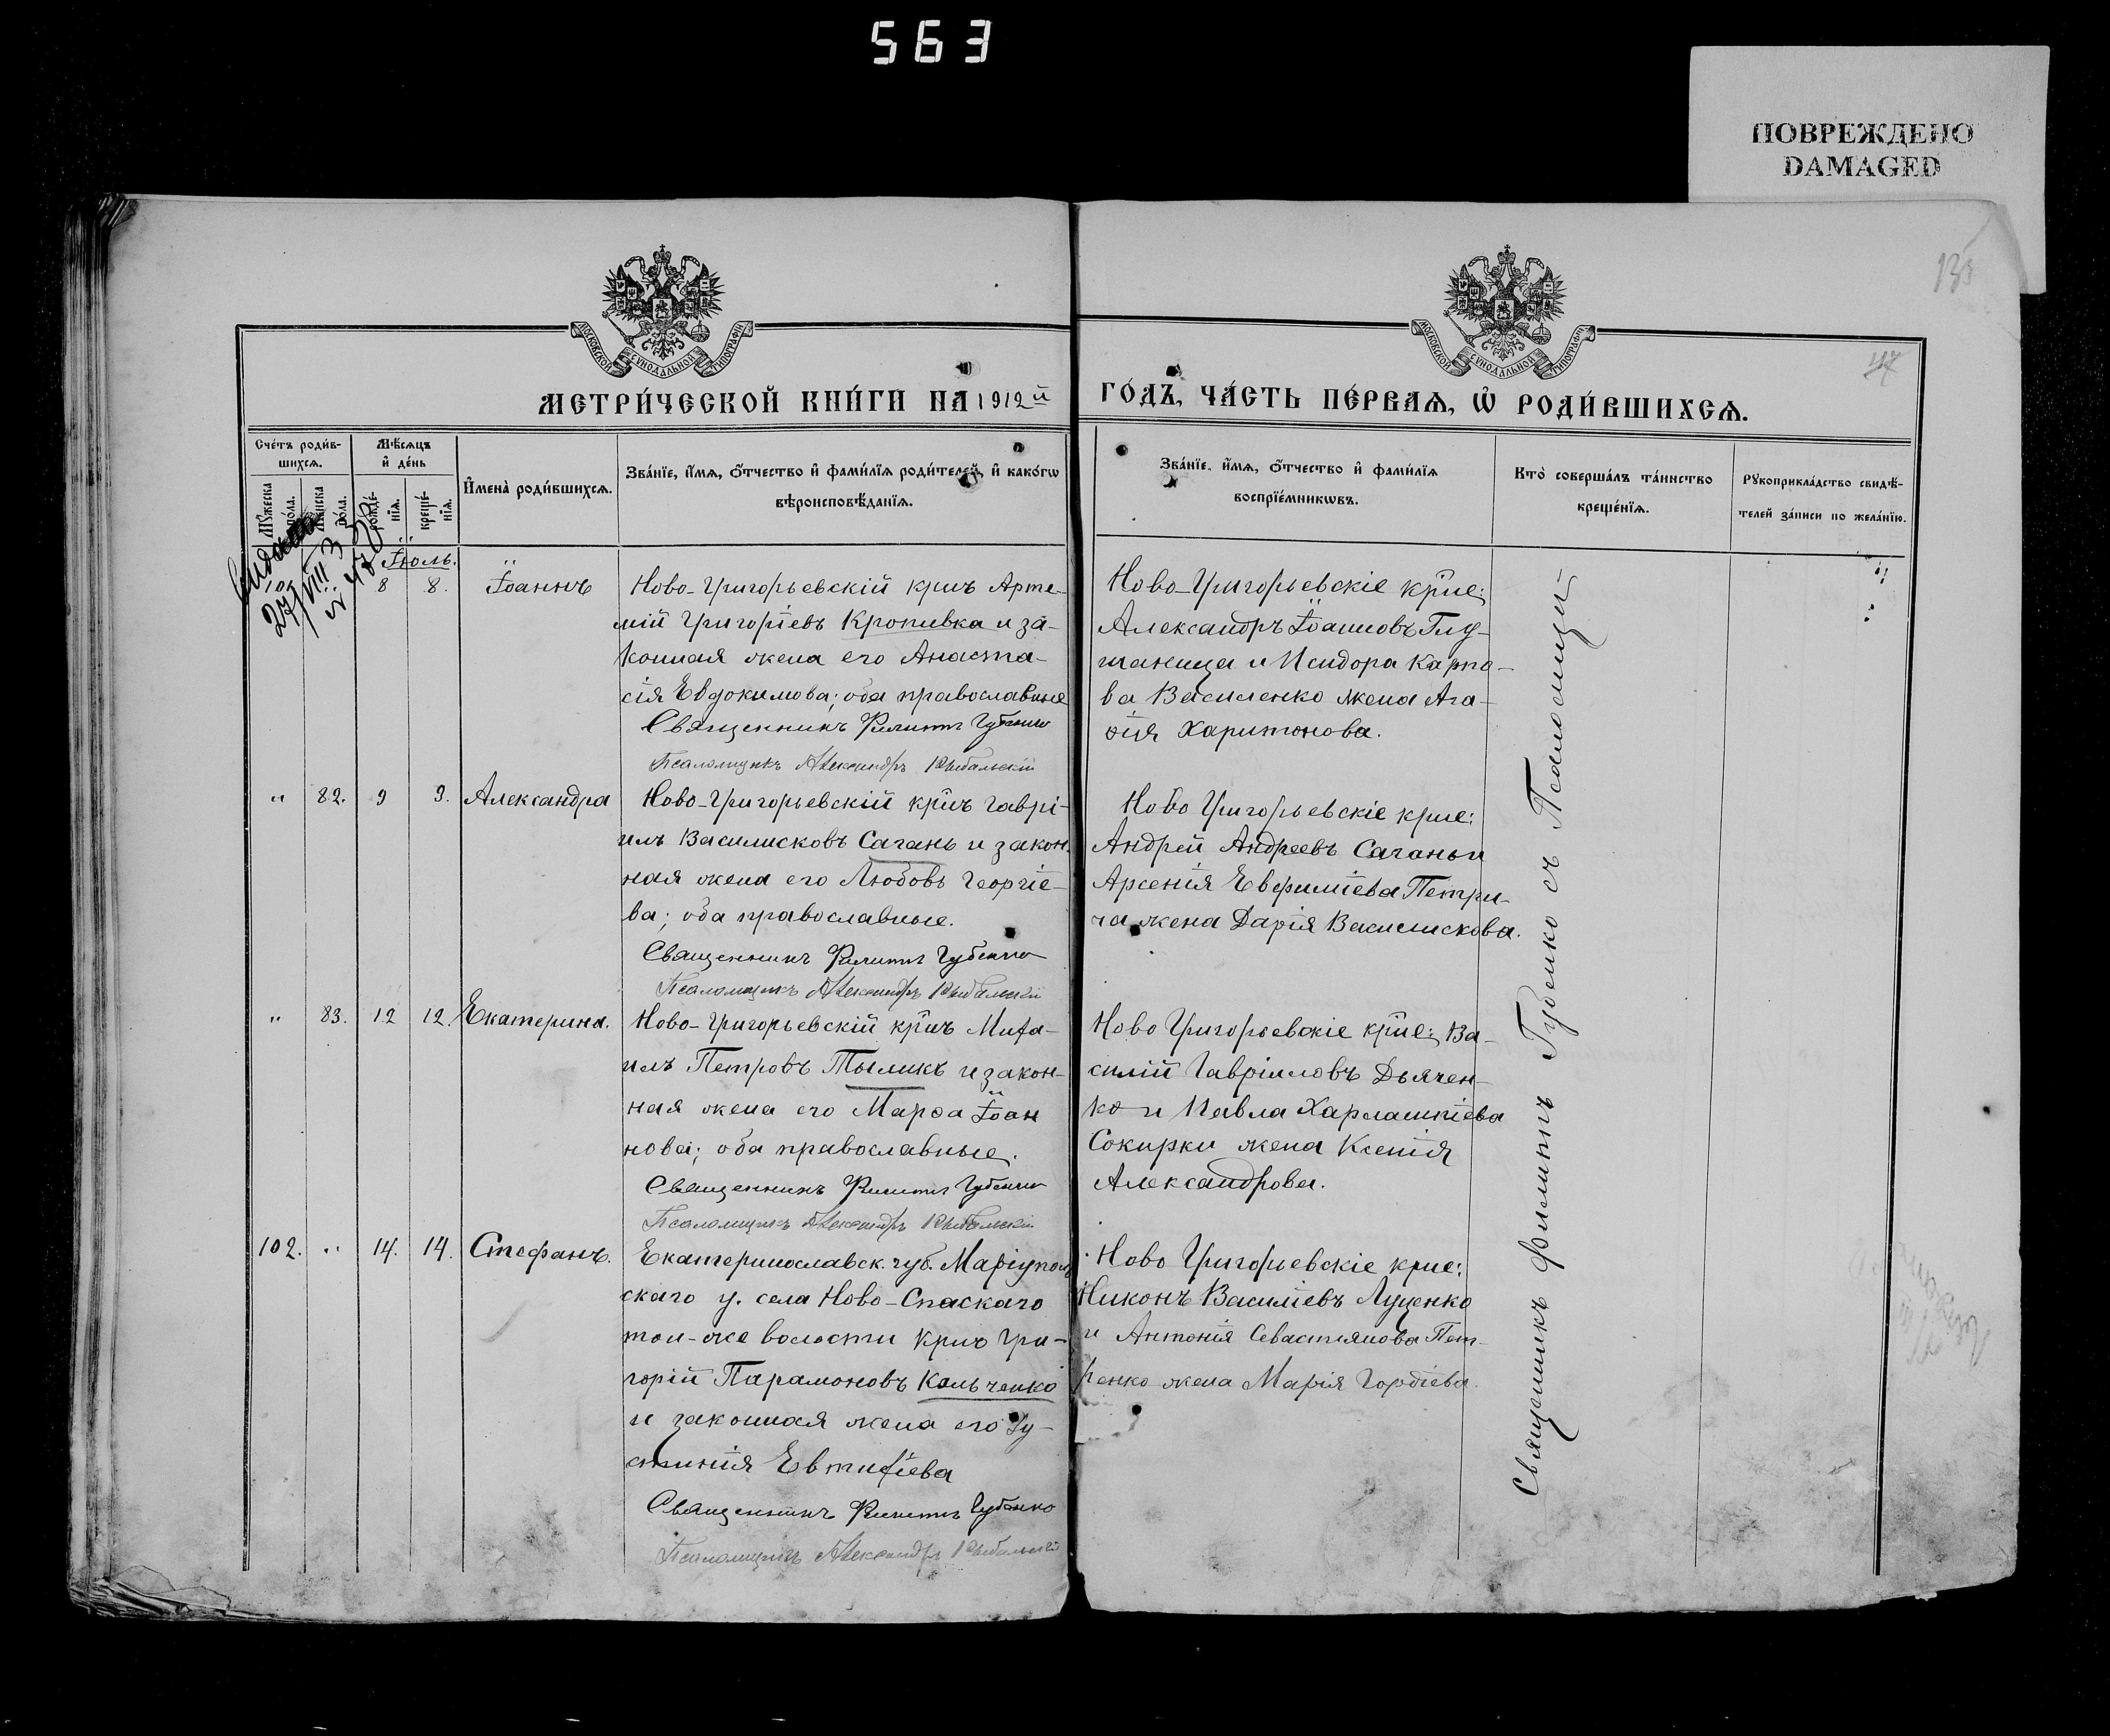 563
ПОВРЕЖДЕНО
DAMAGED
МОСКОВСКОЙ СѴНОДАЛЬНОЙ ТИПОГРАФІИ
МОСКОВСКОЙ СѴНОДАЛЬНОЙ ТИПОГРАФІИ
135
47
МЕТРИ́ЧЕСКОЙ КНИ́ГИ НА 1912 й
ГО́ДЪ, ЧА́СТЬ ПЕ́РВАѦ, Ѡ҆ РОДИ́ВШИХСѦ.
Сче́тъ роди́в-
шихсѧ.
Мѣ́сѧцъ
и҆ де́нь
Мꙋ́жеска по́ла.
Же́нска по́ла.
рожде́-
нїѧ.
креще́-
нїѧ.
И҆мена̀ роди́вшихсѧ.
Зва́нїе, и҆́мѧ, ѻ҆́тчество и҆ фами́лїѧ роди́телей, и҆ како́гѡ
вѣроисповѣ́данїѧ.
Зва́нїе, и҆́мѧ, ѻ҆́тчество и҆ фами́лїѧ
воспрїе́мникѡвъ.
Кто̀ соверша́лъ та́инство
креще́нїѧ.
Рꙋкоприкла́дство свидѣ́-
телей за́писи по жела́нїю.
27/VIII
Іюль.
8 8. Іоаннъ
Ново-Григорьевскій кр-нъ Арте-
мій Григоріевъ Кропивка и за-
конная жена его Анаста-
сія Евдокимова; оба православные
Священникъ Филиппъ Губенко
Псаломщикъ Александръ
Ново-Григорьевскіе кр-не:
Александръ Іоанновъ Глу-
шаница и Исидора Карпо-
ва Василенко жена Ага-
ѳія Харитонова.
" 82. 9 9. Александра
Ново-Григорьевскій кр-нъ Гаврі-
илъ Василисковъ Сагань и закон-
ная жена его Любовь Георгіе-
ва; оба православные.
Священникъ Филиппъ Губенко
Псаломщикъ Александръ
Ново Григорьевскіе кр-не:
Андрей Андреевъ Сагань и
Арсенія Евфиміева Петри-
ча жена Дарія Василискова.
" 83. 12 12. Екатерина.
Ново-Григорьевскій кр-нъ Миха-
илъ Петровъ Тыликъ и закон-
ная жена его Марѳа Іоан
нова; оба православные.
Священникъ Филиппъ Губенко
Псаломщикъ Александръ
Ново Григорьевскіе кр-не: Ва-
силій Гавріиловъ Дьячен-
ко и Павла Харлампіева
Сокирки жена Ксенія
Александрова.
102. " 14. 14. Стефанъ.
Екатеринославск. губ. Маріупол
скаго у. села Ново-Спаскаго
той-же волости кр-нъ Гри-
горій Парамоновъ Кальченко
и законная жена его Іу-
стинія Евтихіева
Священникъ Филиппъ Губенко
Псаломщикъ Александръ
Ново Григорьевскіе кр-не:
Никонъ Василіевъ Луценко
и Антонія Севастіянова Пет-
ренко жена Марія Гордіева.
Священникъ Филиппъ Губенко съ Псаломщи-